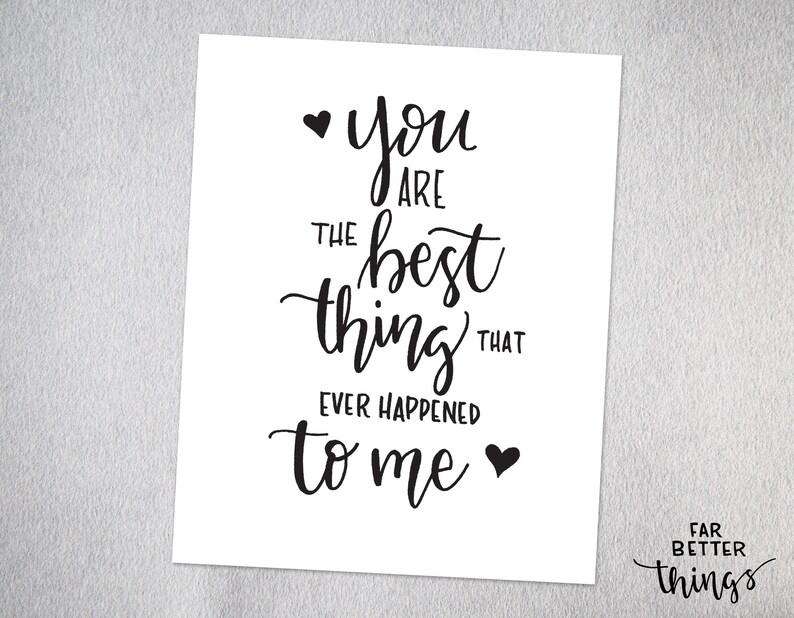 you
ARE
THE best
thing THAT
EVER HAPPENED
to me
FAR
BETTER
things